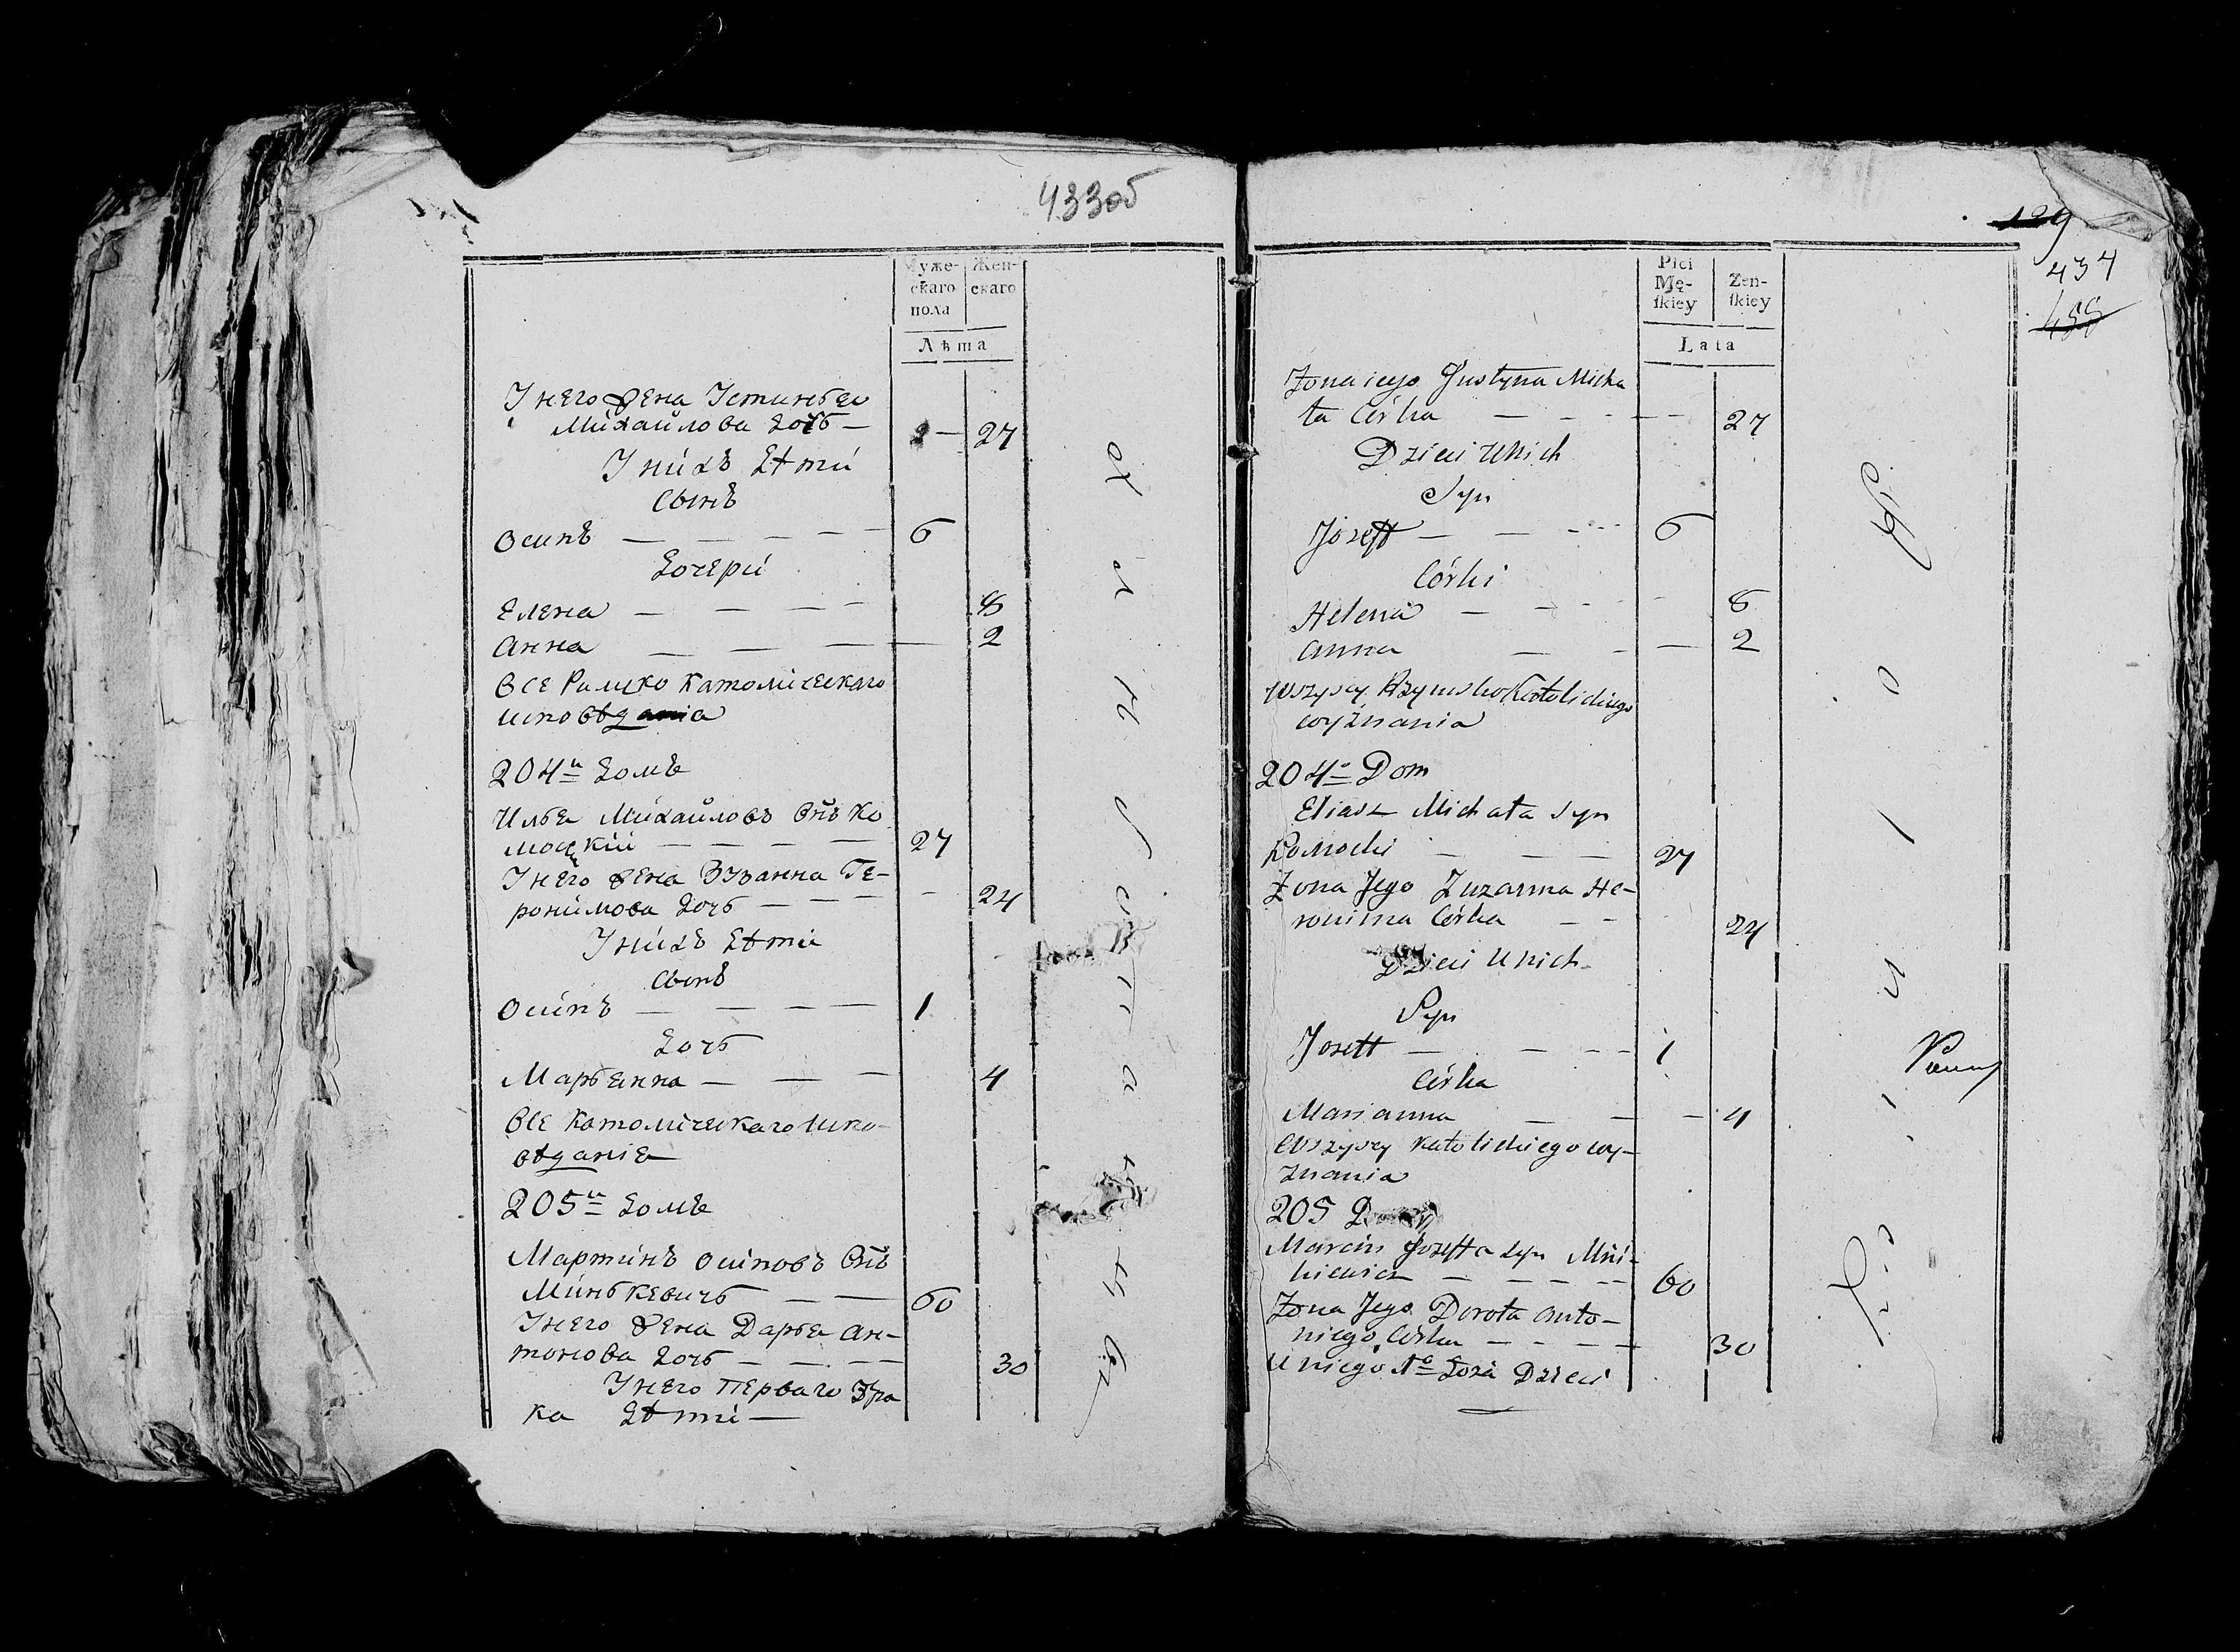 433об
Муже-
скаго
пола
Жен-
скаго
Лѣта
У него жена Устинья
Михайлова дочь — — 27
У нихъ дѣти
Сынъ
Осипъ — — — — — 6
Дочери
Елена — — — — 8
Анна — — — — 2
Все Римско Католического
исповѣдания
204й домъ
Илья Михайловъ Снъ Ко
моцкій — — — — 27
У него жена Зузанна Ге-
ронимова дочь — — — — 24
У нихъ дѣти
Сынъ
Осипъ — — — — 1
Дочь
Марьянна — — — 4
Все Католическаго испо-
вѣдания
205й домъ
Мартинъ Осиповъ Снъ
Минькевичъ — — 60
У него жена Дарья Ан-
тонова дочь — — — — 30
У него Перваго Бра
ка дѣти —
129
434
Płci
Mę-
ſkiey
Żen-
ſkiey
Lata
Zona iego Justyna Micha
ła Córka — — — — 27
Dzieci u Nich
Syn
Jozeff — — — 6
Córki
Helena — — — — 8
Anna — — — 2
Wszyscy Rzymsko Katolickiego
wyznania
204o Dom
Eliasz Michała Syn
Komocki — — — 27
Zona Jego Zuzanna He-
ronima Córka — — 24
Dzieci u Nich
Syn
Jozeff — — — — 1
Córka
Marianna — — — 4
Wszyscy Katolickiego wy-
znania
205 Dom
Marcin Jozeffa Syn Min-
kiewicz — — — — 60
Zona Jego Dorota Anto-
niego Córka — — — — 30
U niego 1o Łoża Dzieci